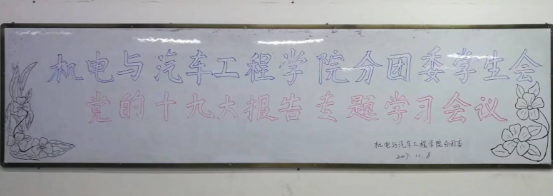 机电与汽车工程学院分团委学生会
党的十九大报告专题学习会议
机电与汽车工程学院分团委
2017.11.8